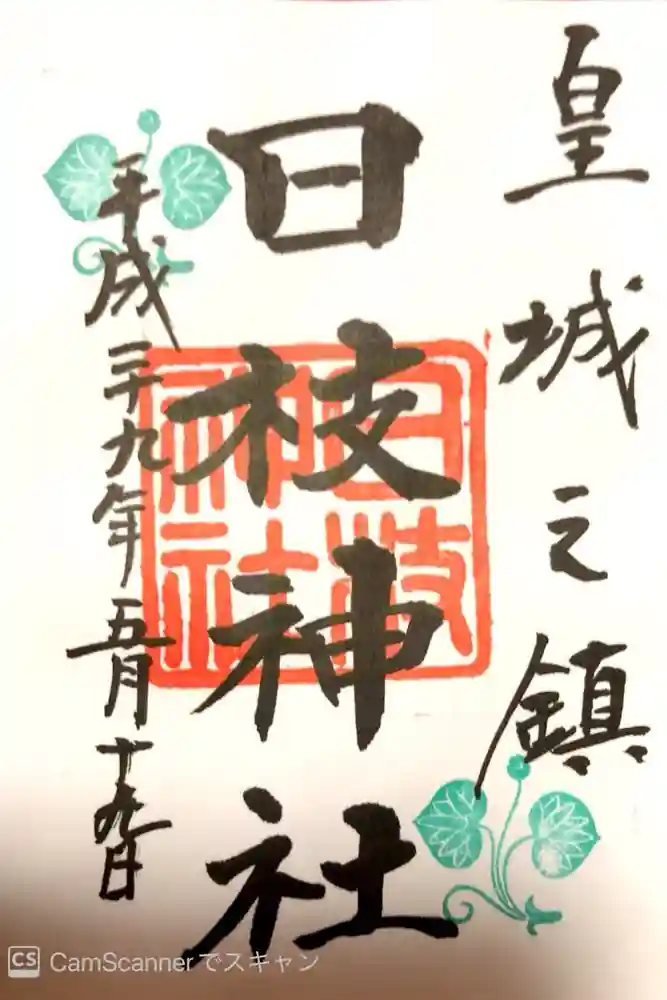 皇城之鎮
日枝神社
平成二十九年五月十日
日枝
神社
CS CamScannerでスキャン